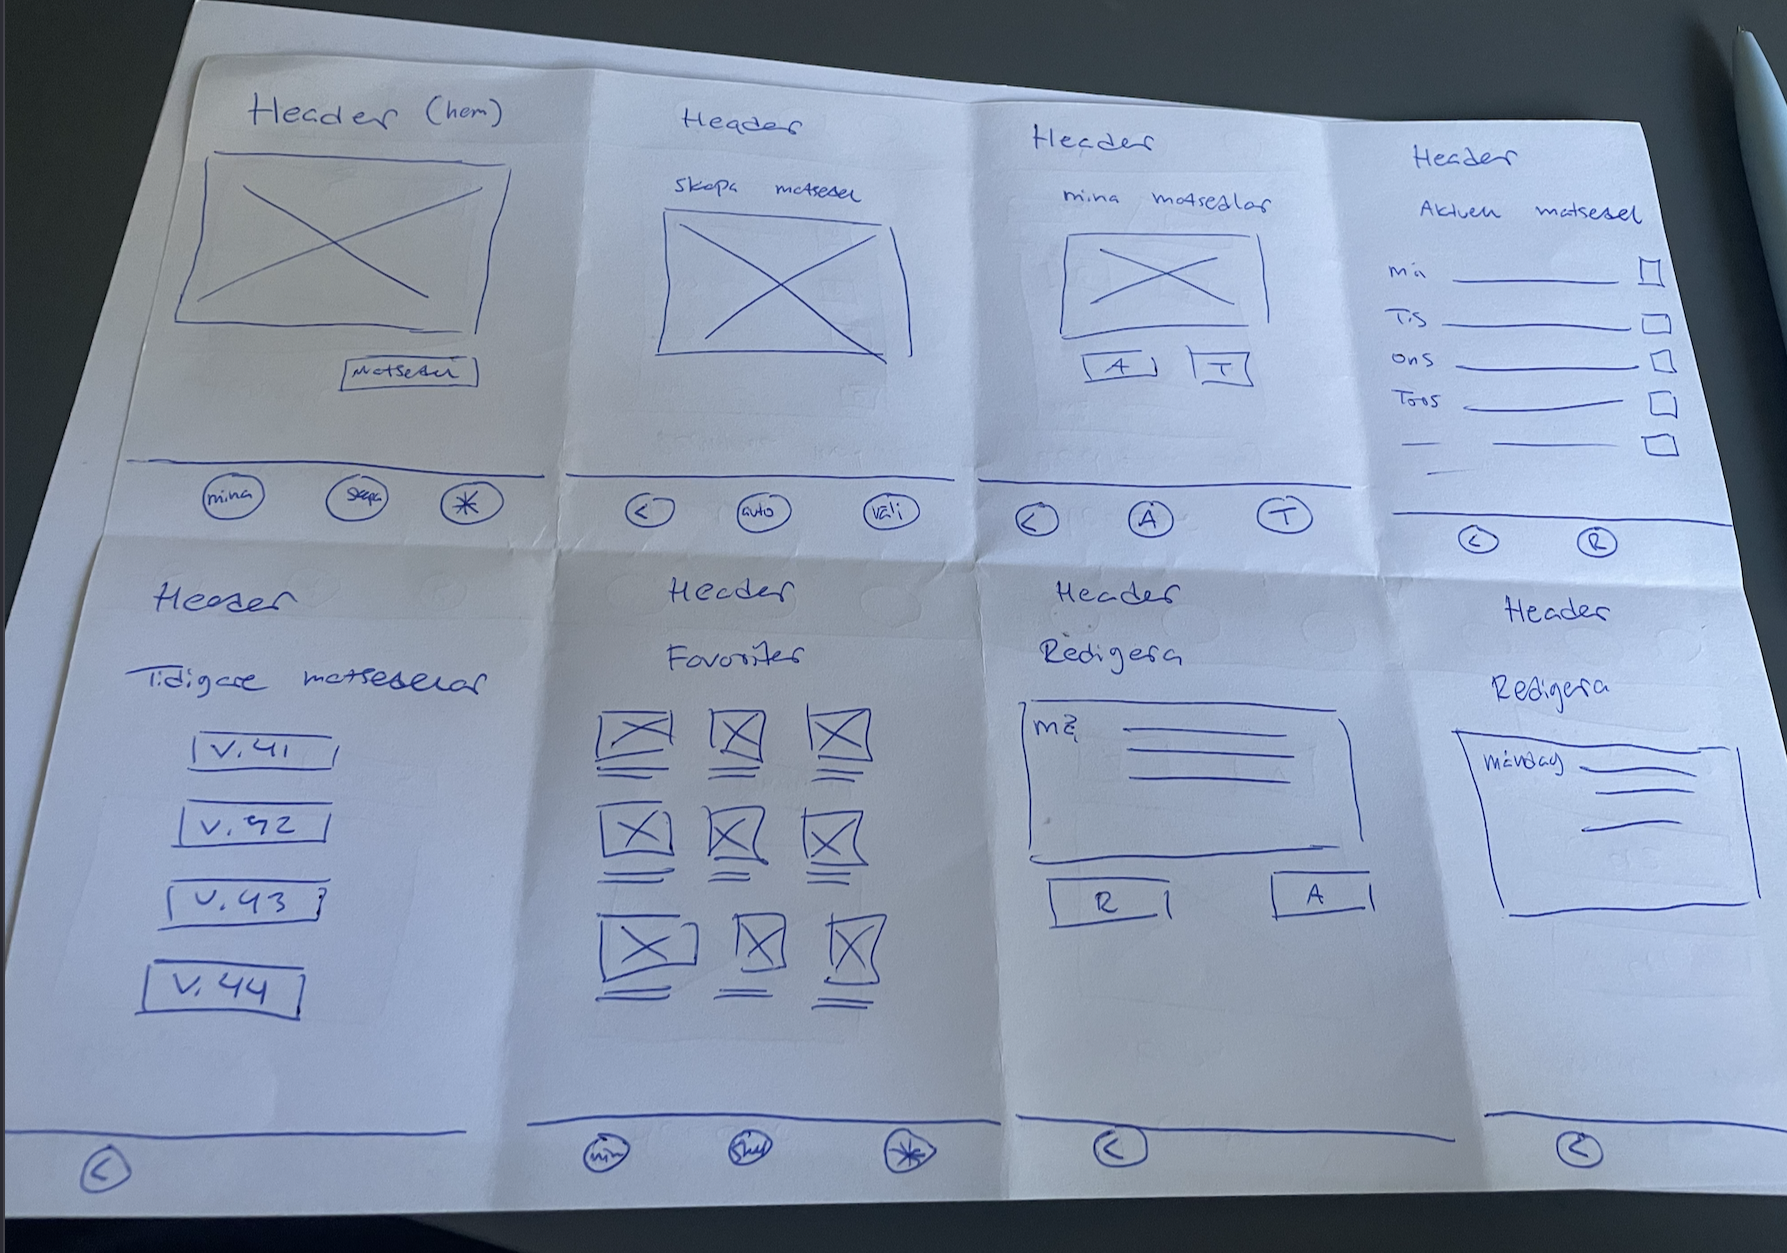 Header (hem)
Matsedel
mina
skapa
Header
skapa matsedel
<
auto
välj
Header
mina matsedlar
A T
<
A
T
Header
Aktuell matsedel
må
Tis
ons
Tors
<
R
Header
Tidigare matsedelar
v.41
v.42
v.43
v.44
<
Header
Favoriter
min
Header
Redigera
må
R A
<
Header
Redigera
måndag
<